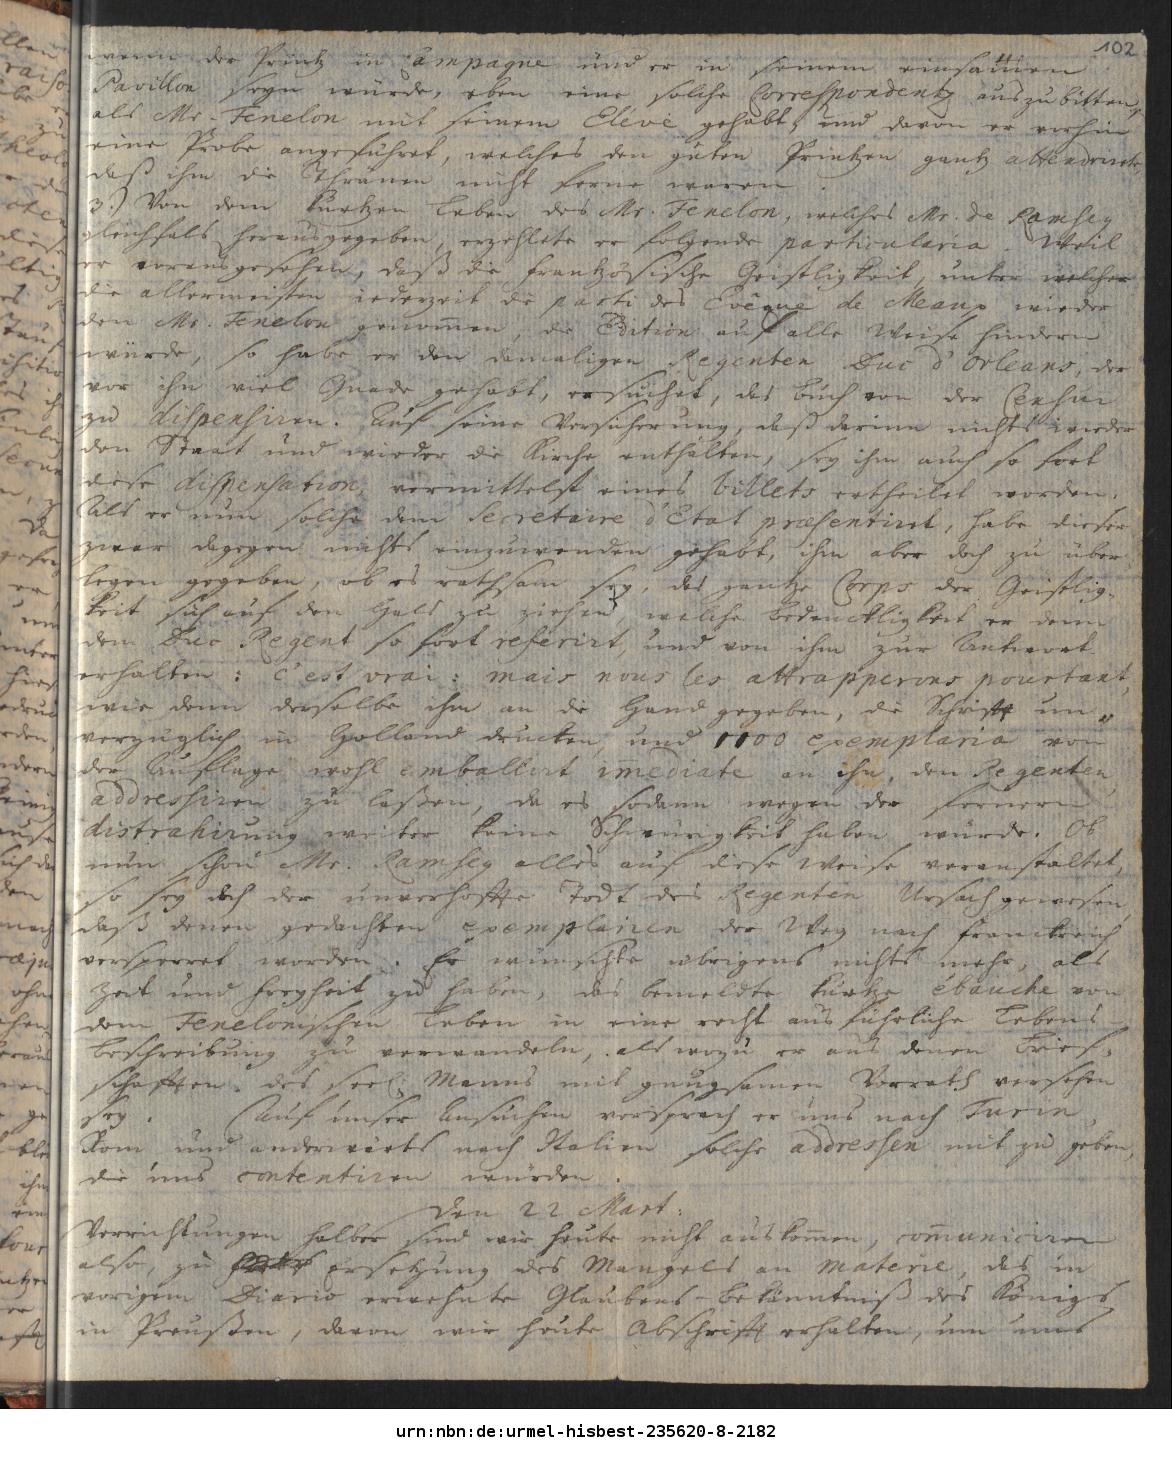 102
wenn der Printz in Campagne und er in seinem einsamen
Pavillon seyn würde, eben eine solche Correspondentz auszubitten,
als Mr. Fenelon mit seinem Elevé gehabt, und davon er vorhin
eine Probe angeführet, welches den guten Printzen gantz attendrirete,
daß ihm die Thränen nicht ferne waren.
3.) Von dem kurtzen Leben des Mr. Fenelon, welches Mr. de Ramsey
gleichfals herausgegeben, erzehlete er folgende particularia. Weil
er vorausgesehen, daß die frantzösische Geistligkeit, unter welcher
die allermeisten iederzeit die parti des Evêque de Meaux wieder
den Mr. Fenelon genom̄en, die Edition auf alle Weise hindern
würde, so habe er den damaligen Regenten Duc d'Orleans, der
vor ihn viel Gnade gehabt, ersuchet, das Buch von der Censur
zu dispensiren. Auf seine Versicherung, daß darinn nichts wieder
den Staat und wieder die Kirche enthalten, sey ihm auch so fort
diese dispensation, vermittelst eines billets ertheilet worden.
Als er nun solche dem Secretaire d'Etat præsentiret, habe dieser
zwar dagegen nichts einzuwenden gehabt, ihm aber doch zu über-
legen gegeben, ob es rathsam sey, das gantze Corps der Geistlig-
keit sich auf den Hals zu ziehen, welche Bedencklichkeit er denn
dem Duc Regent so fort referirt, und von ihm zur Antwort
erhalten: c'est vrai: mais nous les attrapperons pourtant,
wie denn derselbe ihm an die Hand gegeben, die Schrifft un-
verzüglich in Holland drucken, und 1100 exemplaria von
der Auflage wohl emballirt im̄ediate an ihn, den Regenten,
addressiren zu laßen, da es sodann wegen der fernern
distrahirung weiter keine Schwürigkeit haben würde. Ob
nun schon Mr. Ramsey alles auf diese Weise veranstaltet,
so sey doch der unverhoffte Todt des Regenten Ursach gewesen,
daß denen gedachten exemplairen der Weg nach Franckreich
versperret worden. Er wünschte übrigens nichts mehr, als
Zeit und Freyheit zu haben, das bemeldte kurtze ébauche von
dem Fenelonischen Leben in eine recht ausführliche Lebens-
beschreibung zu verwandeln, als wozu er aus denen Brief-
schafften des seel. Manns mit gnugsamen Vorrath versehen
sey. Auf unser Ansuchen versprach er uns nach Turin,
Rom und anderwärts nach Italien solche addressen mit zu geben,
die uns contentiren würden.
Den 22 Mart:
Verrichtungen halber sind wir heute nicht auskom̄en, com̄uniciren
also, zu Ersetzung des Mangels an materie, das in
vorigem Diario erwehnte Glaubens-Bekänntniß des Königs
in Preußen, davon wir heute Abschrifft erhalten, um uns
urn:nbn:de:urmel-hisbest-235620-8-2182